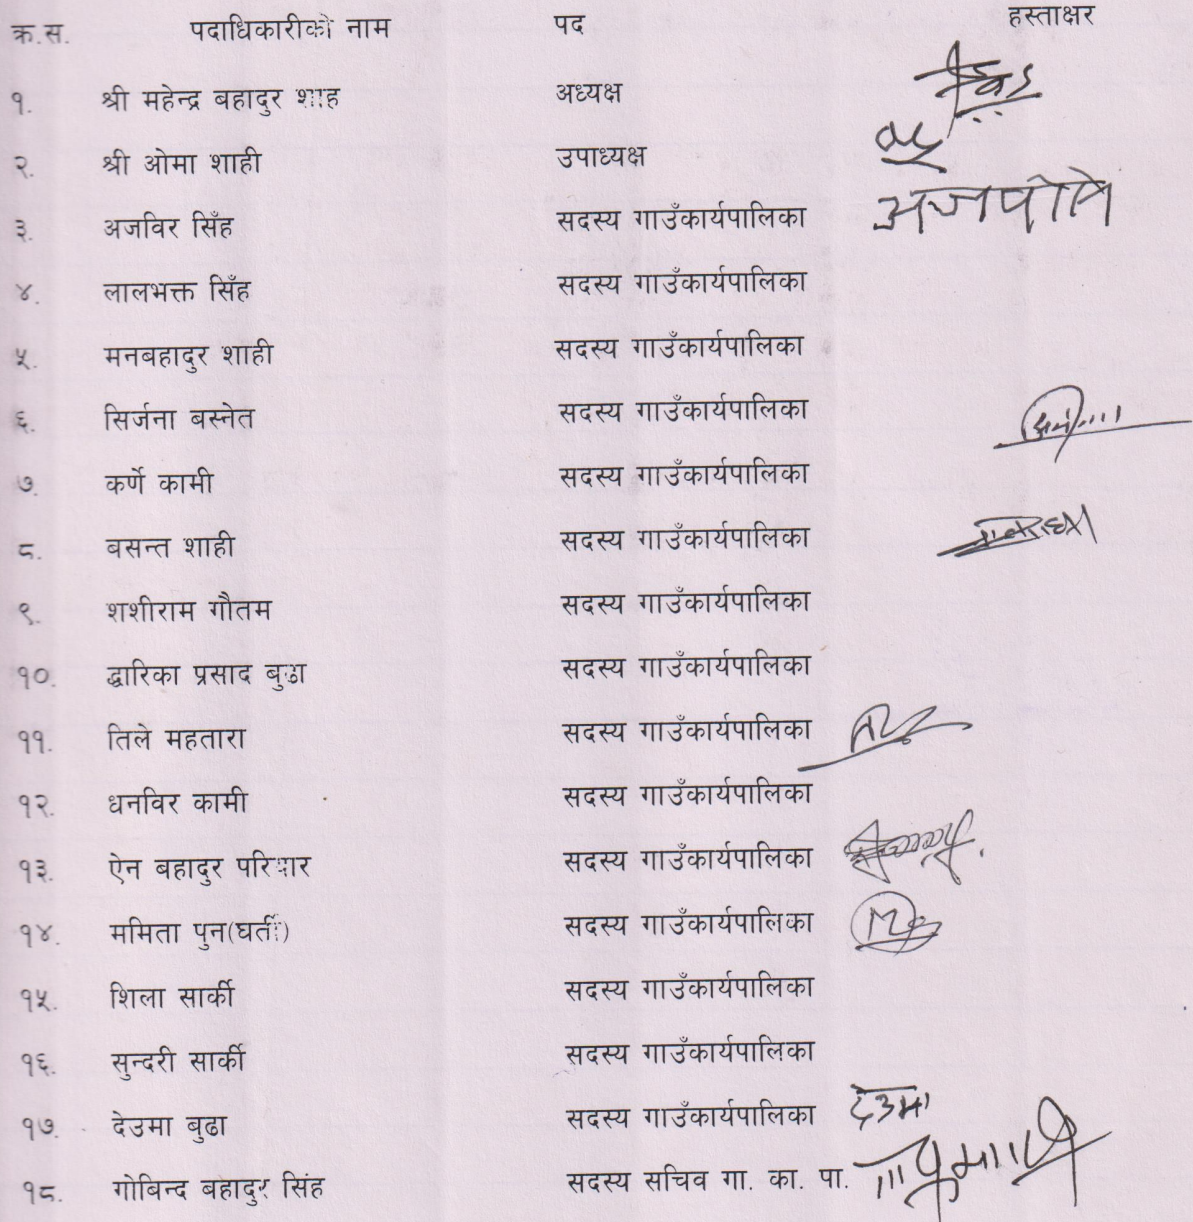 क्र.स. पदाधिकारीको नाम पद हस्ताक्षर
१. श्री महेन्द्र बहादुर शाह अध्यक्ष
२. श्री ओमा शाही उपाध्यक्ष
३. अजविर सिँह सदस्य गाउँकार्यपालिका
४. लालभक्त सिँह सदस्य गाउँकार्यपालिका
५. मनबहादुर शाही सदस्य गाउँकार्यपालिका
६. सिर्जना बस्नेत सदस्य गाउँकार्यपालिका
७. कर्णे कामी सदस्य गाउँकार्यपालिका
८. बसन्त शाही सदस्य गाउँकार्यपालिका
९. शशीराम गौतम सदस्य गाउँकार्यपालिका
१०. द्धारिका प्रसाद बुढा सदस्य गाउँकार्यपालिका
११. तिले महतारा सदस्य गाउँकार्यपालिका
१२. धनविर कामी सदस्य गाउँकार्यपालिका
१३. ऐन बहादुर परियार सदस्य गाउँकार्यपालिका
१४. ममिता पुन(घर्ती) सदस्य गाउँकार्यपालिका
१५. शिला सार्की सदस्य गाउँकार्यपालिका
१६. सुन्दरी सार्की सदस्य गाउँकार्यपालिका
१७. देउमा बुढा सदस्य गाउँकार्यपालिका देउमा
१८. गोबिन्द बहादुर सिंह सदस्य सचिव गा. का. पा.